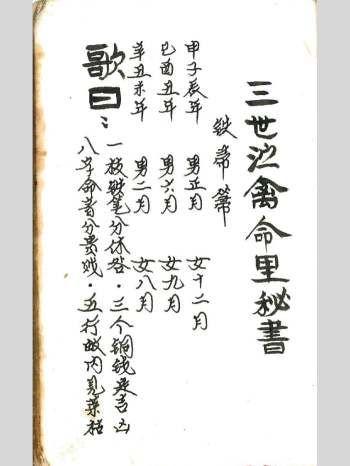 三世禽命里秘書
铁帚箒
甲子辰年 男正月 女十二月
巳酉丑年 男六月 女九月
辛丑未年 男二月 女八月
歌曰：
一枝鉄笔分休咎·三个铜钱定吉凶
八字命者分贵贱·五行内見荣枯